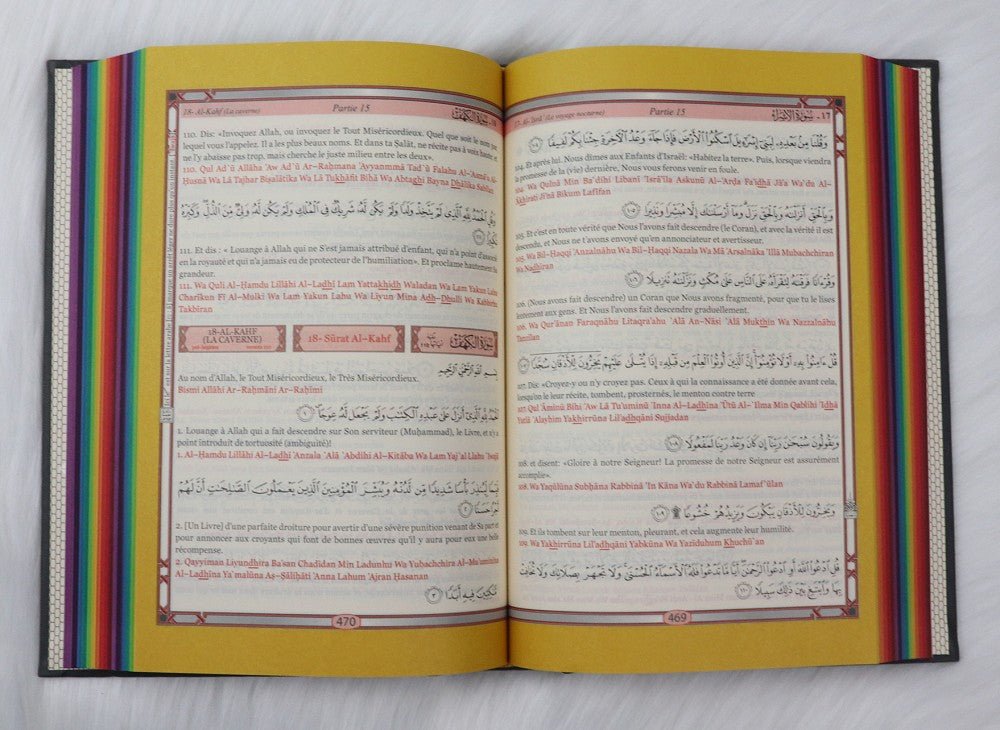 17- Al- Isrâ' (Le voyage nocturne) Partie 15 ١٧ - سورة الإسراء
وَقُلْنَا مِنْ بَعْدِهِ لِبَنِي إِسْرَائِيلَ اسْكُنُوا الْأَرْضَ فَإِذَا جَاءَ وَعْدُ الْآخِرَةِ جِئْنَا بِكُمْ لَفِيفًا ١٠٤
104. Et après lui. Nous dîmes aux Enfants d'Israël: «Habitez la terre». Puis, lorsque viendra
la promesse de la (vie) dernière, Nous vous ferons venir en foule.
104. Wa Qulnā Min Ba`dihi Libanī 'Isrā'īla Askunū Al-'Arđa Fa'idhā Jā'a Wa`du Al-
'Ākhirati Ji'nā Bikum Lafīfan
وَبِالْحَقِّ أَنْزَلْنَاهُ وَبِالْحَقِّ نَزَلَ وَمَا أَرْسَلْنَاكَ إِلَّا مُبَشِّرًا وَنَذِيرًا ١٠٥
105. Et c'est en toute vérité que Nous l'avons fait descendre (le Coran), et avec la vérité il est
descendu, et Nous ne t'avons envoyé qu'en annonciateur et avertisseur.
105. Wa Bil-Ĥaqqi 'Anzalnāhu Wa Bil-Ĥaqqi Nazala Wa Mā 'Arsalnāka 'Illā Mubachchiran
Wa Nadhīran
وَقُرْآنًا فَرَقْنَاهُ لِتَقْرَأَهُ عَلَى النَّاسِ عَلَى مُكْثٍ وَنَزَّلْنَاهُ تَنْزِيلًا ١٠٦
106. (Nous avons fait descendre) un Coran que Nous avons fragmenté, pour que tu le lises
lentement aux gens. Et Nous l'avons fait descendre graduellement.
106. Wa Qur'ānan Faraqnāhu Litaqra'ahu `Alá An-Nāsi `Alá Mukthin Wa Nazzalnāhu
Tanzīlan
قُلْ آمِنُوا بِهِ أَوْ لَا تُؤْمِنُوا إِنَّ الَّذِينَ أُوتُوا الْعِلْمَ مِنْ قَبْلِهِ إِذَا يُتْلَى عَلَيْهِمْ يَخِرُّونَ لِلْأَذْقَانِ سُجَّدًا ١٠٧
107. Dis: «Croyez-y ou n'y croyez pas. Ceux à qui la connaissance a été donnée avant cela,
lorsqu'on leur récite, tombent, prosternés, le menton contre terre
107. Qul 'Āminū Bihi 'Aw Lā Tu'uminū 'Inna Al-Ladhīna 'Ūtū Al-`Ilma Min Qablihi 'Idhā
Yutlá `Alayhim Yakhirrūna Lil'adhqāni Sujjadan
وَيَقُولُونَ سُبْحَانَ رَبِّنَا إِنْ كَانَ وَعْدُ رَبِّنَا لَمَفْعُولًا ١٠٨
108. et disent: «Gloire à notre Seigneur! La promesse de notre Seigneur est assurément
accomplie».
108. Wa Yaqūlūna Subĥāna Rabbinā 'In Kāna Wa`du Rabbinā Lamaf`ūlan
وَيَخِرُّونَ لِلْأَذْقَانِ يَبْكُونَ وَيَزِيدُهُمْ خُشُوعًا ١٠٩
109. Et ils tombent sur leur menton, pleurant, et cela augmente leur humilité.
109. Wa Yakhirrūna Lil'adhqāni Yabkūna Wa Yazīduhum Khuchū`an
قُلِ ادْعُوا اللَّهَ أَوِ ادْعُوا الرَّحْمَنَ أَيًّا مَا تَدْعُوا فَلَهُ الْأَسْمَاءُ الْحُسْنَى وَلَا تَجْهَرْ بِصَلَاتِكَ وَلَا تُخَافِتْ
بِهَا وَابْتَغِ بَيْنَ ذَلِكَ سَبِيلًا ١١٠
469
18- Al-Kahf (La caverne) Partie 15 ١٨ - سورة الكهف
110. Dis: «Invoquez Allah, ou invoquez le Tout Miséricordieux. Quel que soit le nom par
lequel vous l'appelez. Il a les plus beaux noms. Et dans ta Ṣalât, ne récite pas à voix haute; et
ne l'y abaisse pas trop, mais cherche le juste milieu entre les deux».
110. Qul Ad`ū Allāha 'Aw Ad`ū Ar-Raĥmana 'Ayyanmmā Tad`ū Falahu Al-'Asmā'u Al-
Ĥusná Wa Lā Tajhar Bişalātika Wa Lā Tukhāfit Bihā Wa Abtaghi Bayna Dhālika Sabīlan
وَقُلِ الْحَمْدُ لِلَّهِ الَّذِي لَمْ يَتَّخِذْ وَلَدًا وَلَمْ يَكُنْ لَهُ شَرِيكٌ فِي الْمُلْكِ وَلَمْ يَكُنْ لَهُ وَلِيٌّ مِنَ الذُّلِّ وَكَبِّرْهُ
تَكْبِيرًا ١١١
111. Et dis : « Louange à Allah qui ne S'est jamais attribué d'enfant, qui n'a point d'associé
en la royauté et qui n'a jamais eu de protecteur de l'humiliation». Et proclame hautement Sa
grandeur.
111. Wa Quli Al-Ĥamdu Lillāhi Al-Ladhī Lam Yattakhidh Waladan Wa Lam Yakun Lahu
Charīkun Fī Al-Mulki Wa Lam Yakun Lahu Wa Līyun Mina Adh-Dhulli Wa Kabbirhu
Takbīran
18-AL-KAHF
(LA CAVERNE)
pré-hégirien versets 110
18- Sūrat Al-Kahf
سورة الكهف
Au nom d'Allah, le Tout Miséricordieux, le Très Miséricordieux. بِسْمِ اللَّهِ الرَّحْمَنِ الرَّحِيمِ
Bismi Allāhi Ar-Raĥmāni Ar-Raĥīmi
الْحَمْدُ لِلَّهِ الَّذِي أَنْزَلَ عَلَى عَبْدِهِ الْكِتَابَ وَلَمْ يَجْعَلْ لَهُ عِوَجًا ١
1. Louange à Allah qui a fait descendre sur Son serviteur (Muḥammad), le Livre, et n'y a
point introduit de tortuosité (ambiguïté)!
1. Al-Ĥamdu Lillāhi Al-Ladhī 'Anzala `Alá `Abdihi Al-Kitāba Wa Lam Yaj`al Lahu `Iwajā
قَيِّمًا لِيُنْذِرَ بَأْسًا شَدِيدًا مِنْ لَدُنْهُ وَيُبَشِّرَ الْمُؤْمِنِينَ الَّذِينَ يَعْمَلُونَ الصَّالِحَاتِ أَنَّ لَهُمْ
أَجْرًا حَسَنًا ٢
2. [Un Livre] d'une parfaite droiture pour avertir d'une sévère punition venant de Sa part et
pour annoncer aux croyants qui font de bonnes œuvres qu'il y aura pour eux une belle
récompense.
2. Qayyiman Liyundhira Ba'san Chadīdan Min Ladunhu Wa Yubachchira Al-Mu'uminīna
Al-Ladhīna Ya`malūna Aş-Şāliĥāti 'Anna Lahum 'Ajran Ĥasanan
مَاكِثِينَ فِيهِ أَبَدًا ٣
470